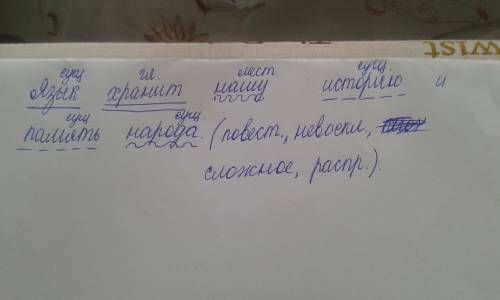 сущ. гл. мест. сущ.
Язык хранит нашу историю и
сущ сущ.
память народа. (повест., невоскл.,
сложное, распр.).
wist